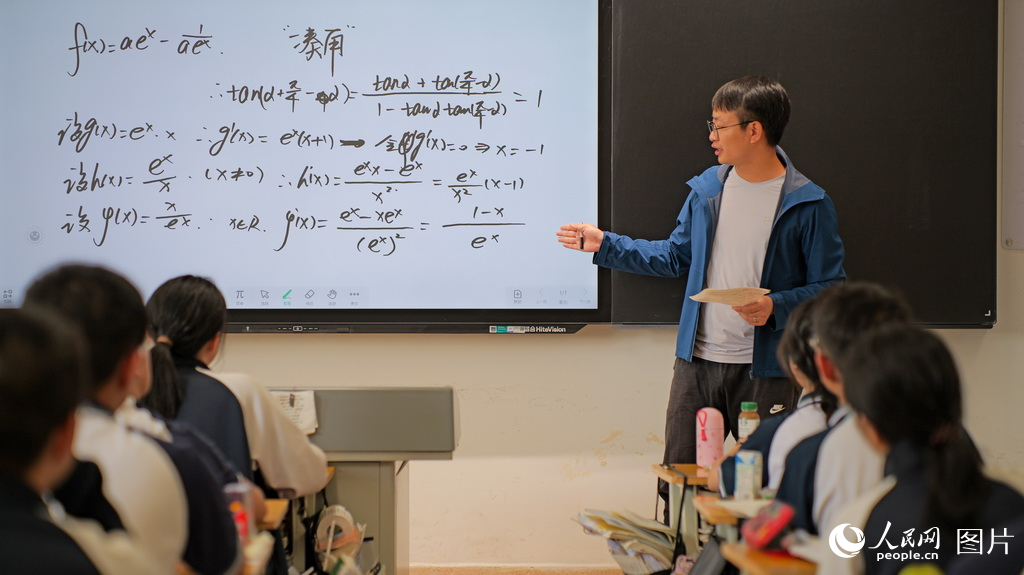 f(x)=ae^x - 1/(ae^x).
∴tan(α+π/4-α)=(tanα+tan(π/4-α))/(1-tanαtan(π/4-α))=1
设g(x)=e^x·x ∴g'(x)=e^x(x+1) 令g'(x)=0⇒x=-1
设h(x)=e^x/x.(x≠0) ∴h'(x)=(e^x x-e^x)/x²=e^x/x²(x-1)
设φ(x)=x/e^x. x∈R. φ'(x)=(e^x-xe^x)/(e^x)²=(1-x)/e^x
1/1
HiteVision
人民网 图片
people.cn